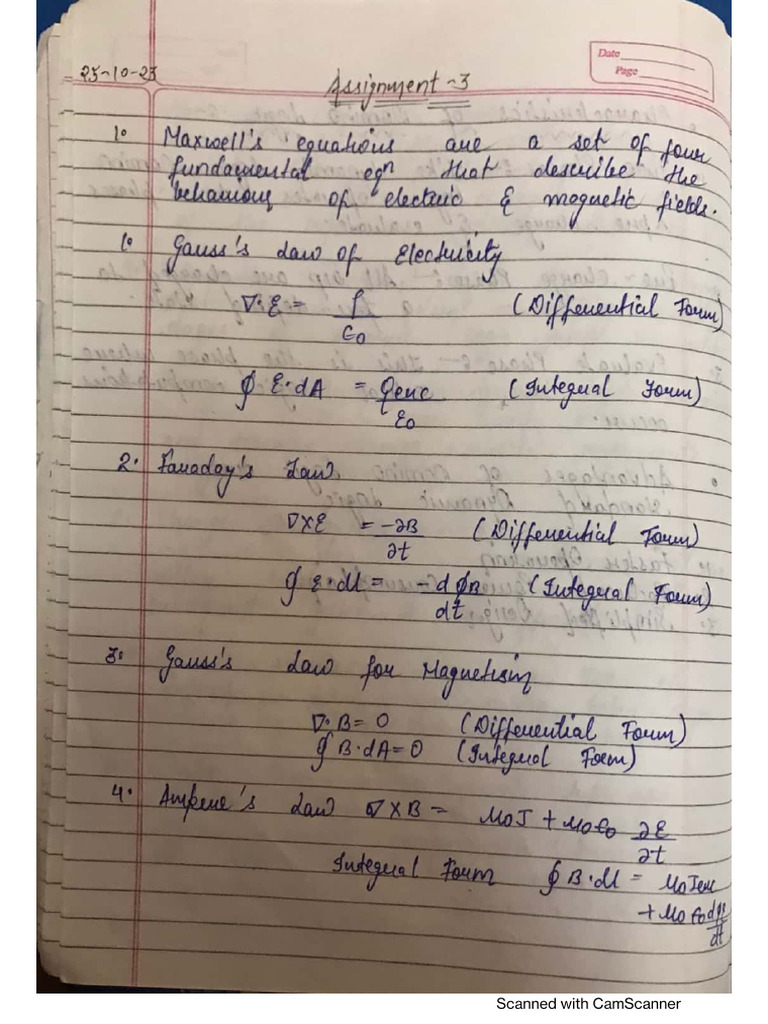 25-10-23
Date
Page
Assignment -3
1. Maxwell's equations are a set of four
fundamental eqn that describe the
behaviour of electric & magnetic fields.
1. Gauss's Law of Electricity
∇·E = ρ/ε0 (Differential Form)
∮ E·dA = Qenc/ε0 (Integral Form)
2. Faraday's Law
∇×E = -∂B/∂t (Differential Form)
∮ E·dl = -dϕB/dt (Integral Form)
3. Gauss's Law for Magnetism
∇·B = 0 (Differential Form)
∮ B·dA = 0 (Integral Form)
4. Ampere's Law ∇×B = μ0J + μ0ε0 ∂E/∂t
Integral Form ∮ B·dl = μ0Ienc
+ μ0ε0 dϕ/dt
Scanned with CamScanner